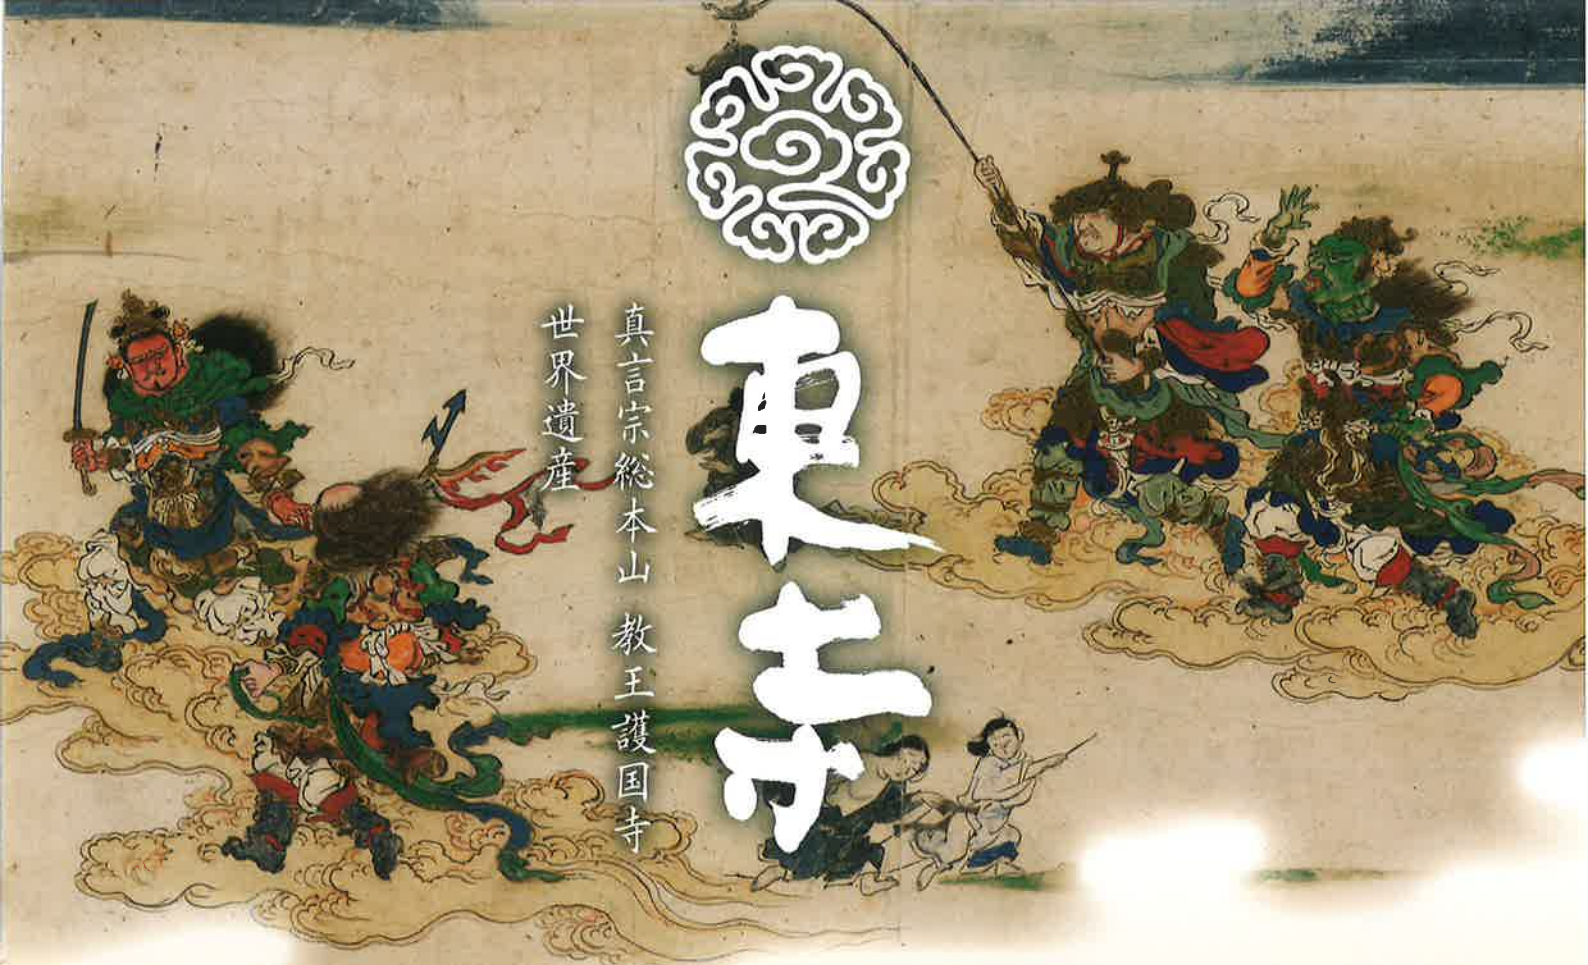 東寺
真言宗総本山 教王護国寺
世界遺産